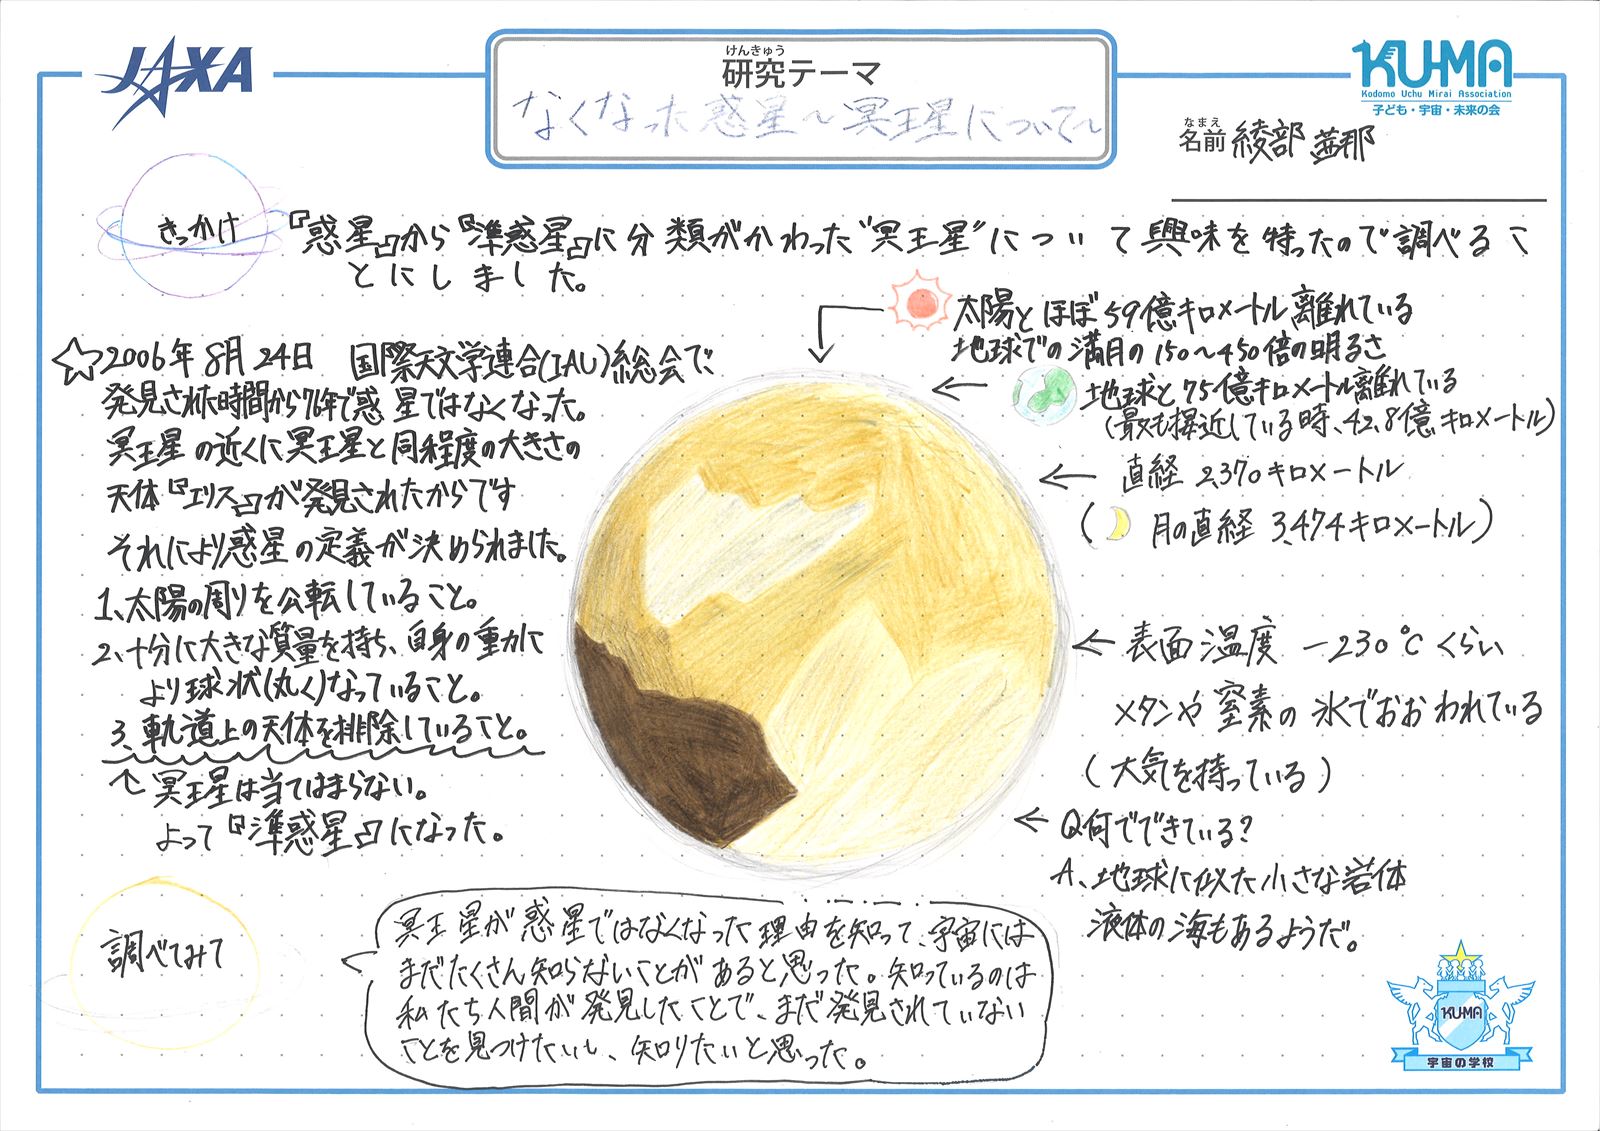 JAXA
けんきゅう
研究テーマ
なくなった惑星～冥王星について～
KU-MA
Kodomo Uchu Mirai Association
子ども・宇宙・未来の会
なまえ
名前 綾部 茜那
きっかけ
『惑星』から『準惑星』に分類がかわった"冥王星"について興味を持ったので調べるこ
とにしました。
太陽とほぼ59億キロメートル離れている
地球での満月の150～450倍の明るさ
地球と75億キロメートル離れている
(最も接近している時、42.8億キロメートル)
直径 2,370キロメートル
(月の直経 3,474キロメートル)
表面温度 -230℃くらい
メタンや窒素の氷でおおわれている
(大気を持っている)
Q何でできている?
A、地球に似た小さな岩体
液体の海もあるようだ。
☆2006年8月24日 国際天文学連合(IAU)総会で、
発見された時間から76年で惑星ではなくなった。
冥王星の近くに冥王星と同程度の大きさの
天体『エリス』が発見されたからです
それにより惑星の定義が決められました。
1、太陽の周りを公転していること。
2、十分に大きな質量を持ち、自身の重力に
より球状(丸く)なっていること。
3、軌道上の天体を排除していること。
↑冥王星は当てはまらない。
よって『準惑星』になった。
調べてみて
冥王星が惑星ではなくなった理由を知って、宇宙には
まだたくさん知らないことがあると思った。知っているのは
私たち人間が発見したことで、まだ発見されていない
ことを見つけたいし、知りたいと思った。
KU-MA
宇宙の学校